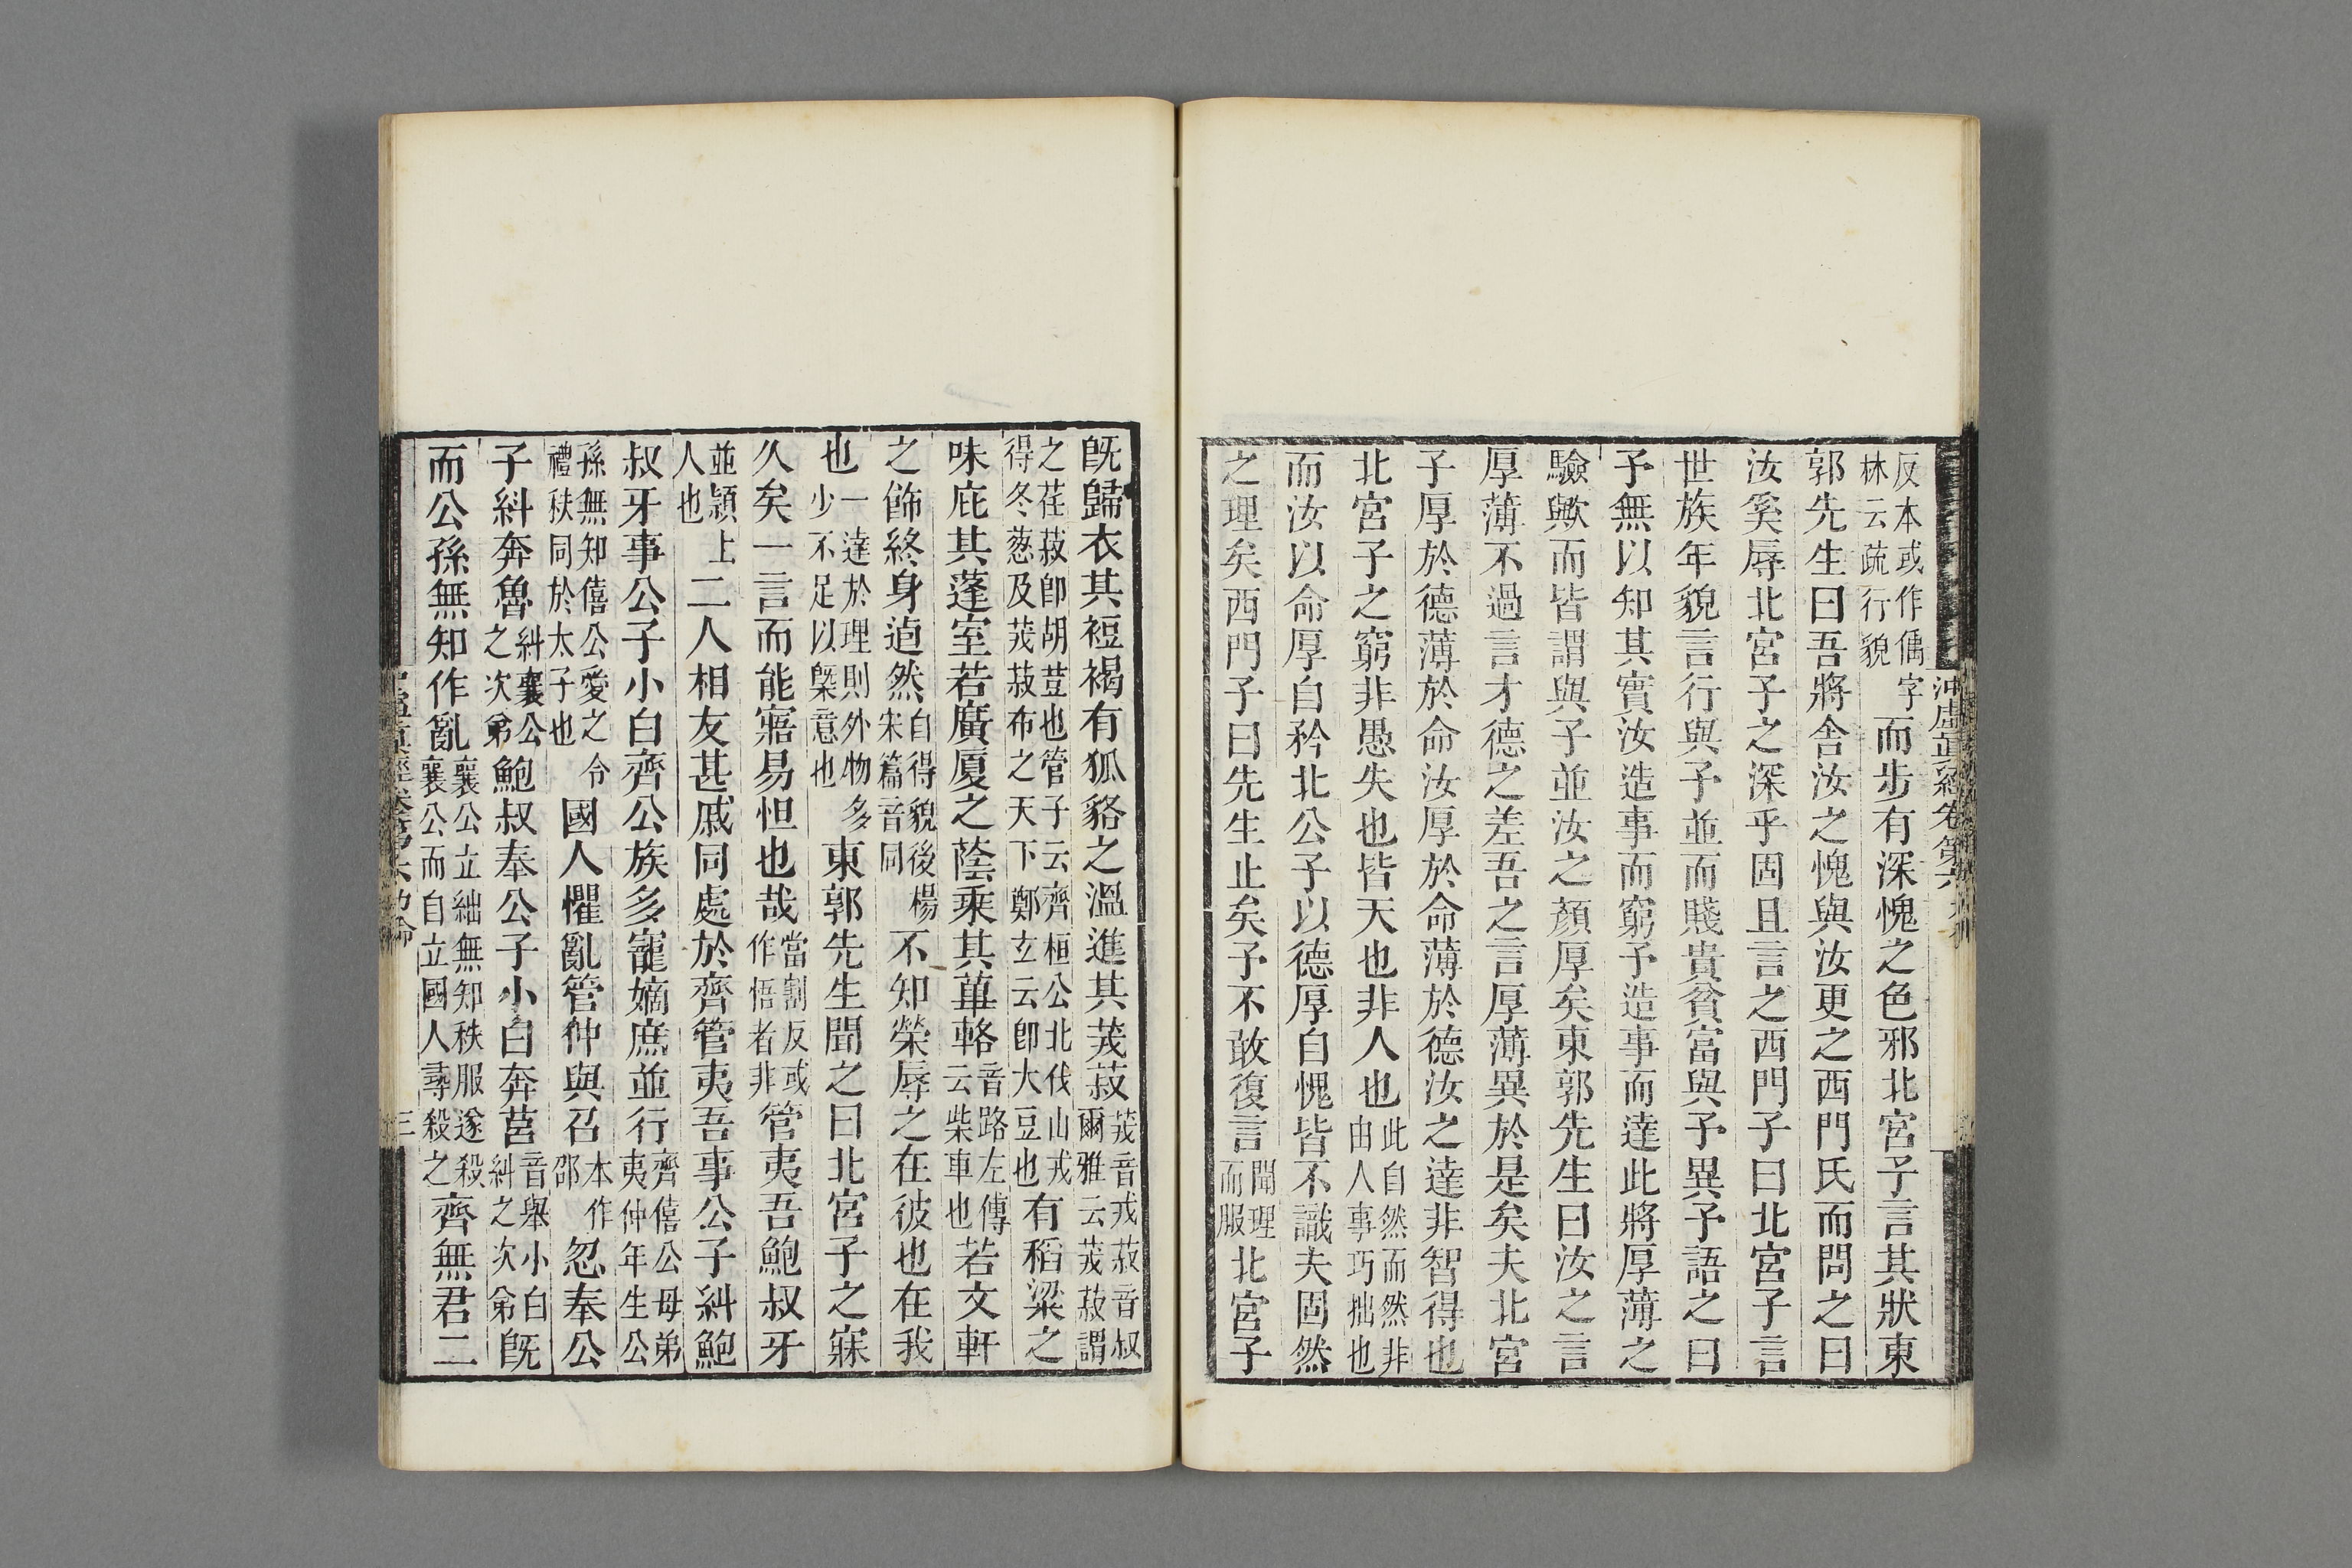 反本或作偊字林云疏行貌而步有深愧之色邪北宮子言其狀東
郭先生曰吾將舍汝之愧與汝更之西門氏而問之曰
汝奚辱北宮子之深乎固且言之西門子曰北宮子言
世族年貌言行與予並而賤貴貧富與予異予語之曰
予無以知其實汝造事而窮予造事而達此將厚薄之
驗歟而皆謂與予並汝之顏厚矣東郭先生曰汝之言
厚薄不過言才德之差吾之言厚薄異於是矣夫北宮
子厚於德薄於命汝厚於命薄於德汝之達非智得也
北宮子之窮非愚失也皆天也非人也此自然而然非由人事巧拙也
而汝以命厚自矜北公子以德厚自愧皆不識夫固然
之理矣西門子曰先生止矣予不敢復言聞理而服北宮子
旣歸衣其裋褐有狐貉之溫進其茙菽茙音戎菽音叔爾雅云茙菽謂
之荏菽卽胡荳也管子云齊桓公北伐山戎得冬葱及茙菽布之天下鄭玄云卽大豆也有稻粱之
味庇其蓬室若廣厦之蔭乘其蓽輅音路左傳云柴車也若文軒
之飾終身逌然自得貌後楊朱篇音同不知榮辱之在彼也在我
也一達於理則外物多少不足以槩意也東郭先生聞之曰北宮子之寐
久矣一言而能寤易怛也哉當割反或作悟者非管夷吾鮑叔牙
並潁上人也二人相友甚戚同處於齊管夷吾事公子糾鮑
叔牙事公子小白齊公族多寵嫡庶並行齊僖公母弟夷仲年生公
孫無知僖公愛之令禮秩同於太子也國人懼亂管仲與召本作邵忽奉公
子糾奔魯糾襄公之次弟鮑叔奉公子小白奔莒音舉小白糾之次弟旣
而公孫無知作亂襄公立絀無知秩服遂殺襄公而自立國人尋殺之齊無君二